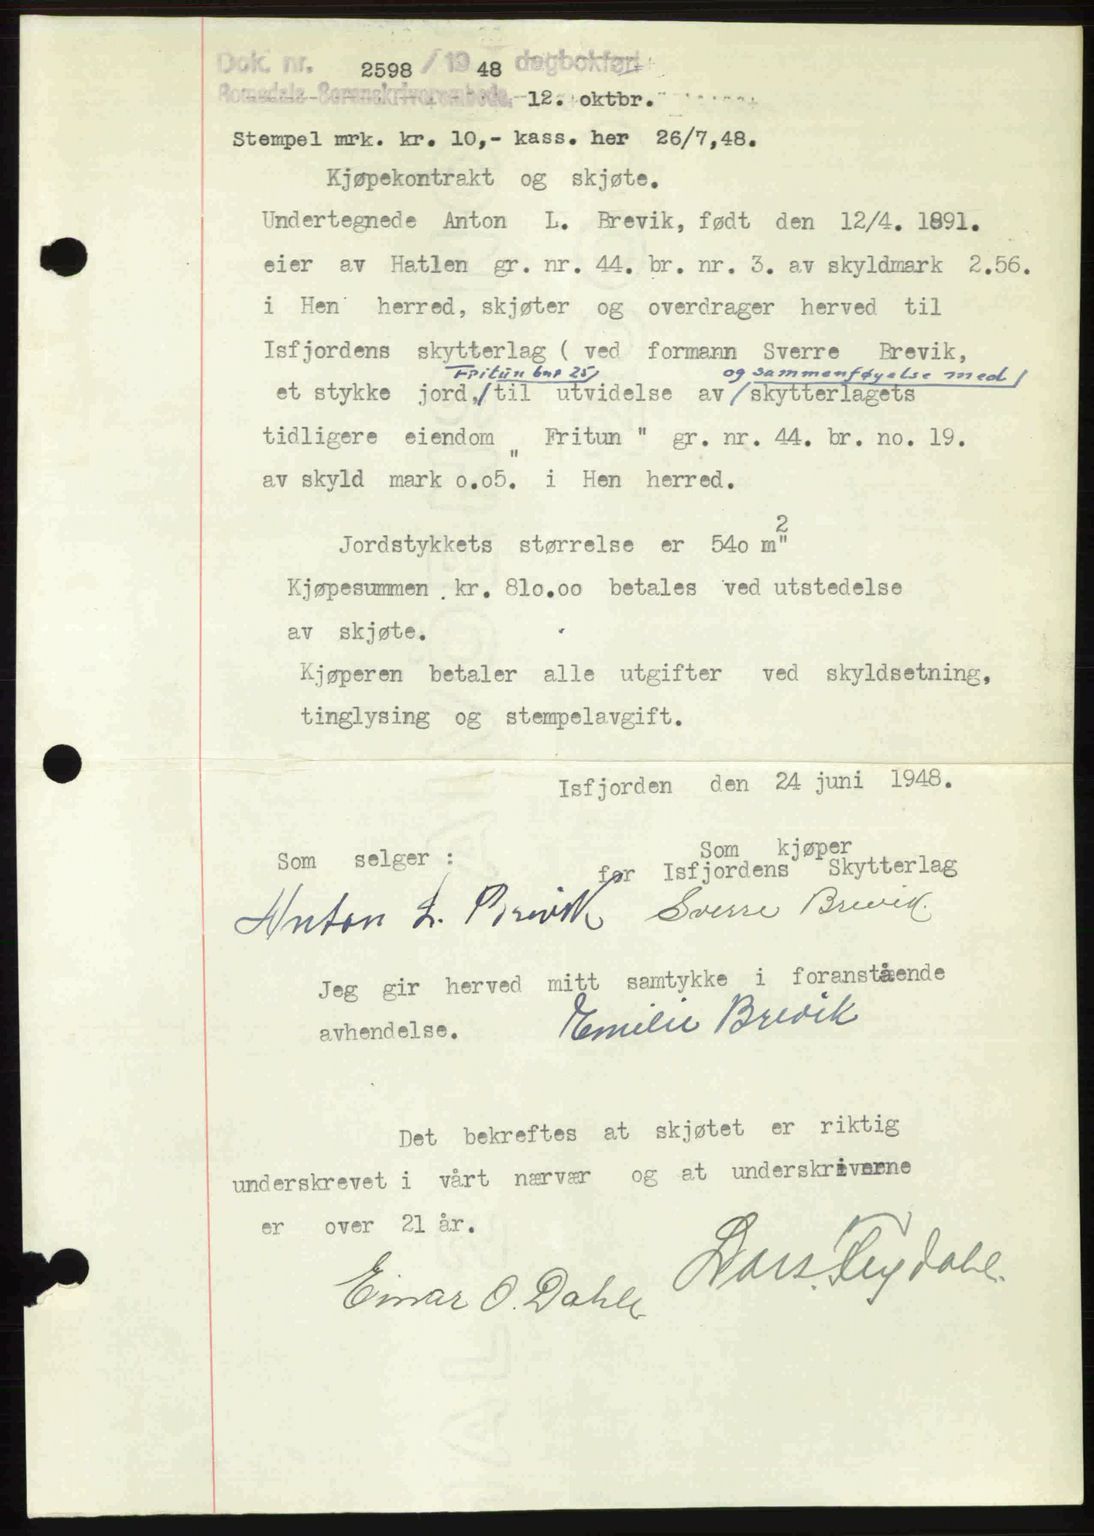 Dok. nr. 2598 / 19 48 dagbokført
Romsdals Sorenskriverembede, 12. oktbr.
Stempel mrk. kr. 10,- kass. her 26/7,48.
Kjøpekontrakt og skjøte.
Undertegnede Anton L. Brevik, født den 12/4. 1891.
eier av Hatlen gr. nr. 44. br. nr. 3. av skyldmark 2.56.
i Hen herred, skjøter og overdrager herved til
Isfjordens skytterlag ( ved formann Sverre Brevik,
Fritun bnr 25/ og sammenføyelse med/
et stykke jord,/til utvidelse av/skytterlagets
tidligere eiendom " Fritun " gr. nr. 44. br. no. 19.
av skyld mark o.o5. i Hen herred.
Jordstykkets størrelse er 54o m2"
Kjøpesummen kr. 81o.oo betales ved utstedelse
av skjøte.
Kjøperen betaler alle utgifter ved skyldsetning,
tinglysing og stempelavgift.
Isfjorden den 24 juni 1948.
Som selger : Som kjøper
for Isfjordens Skytterlag
Anton L. Brevik Sverre Brevik.
Jeg gir herved mitt samtykke i foranstående
avhendelse. Emilie Brevik
Det bekreftes at skjøtet er riktig
underskrevet i vårt nærvær og at underskriverne
er over 21 år.
Einar O. Dahle Lars